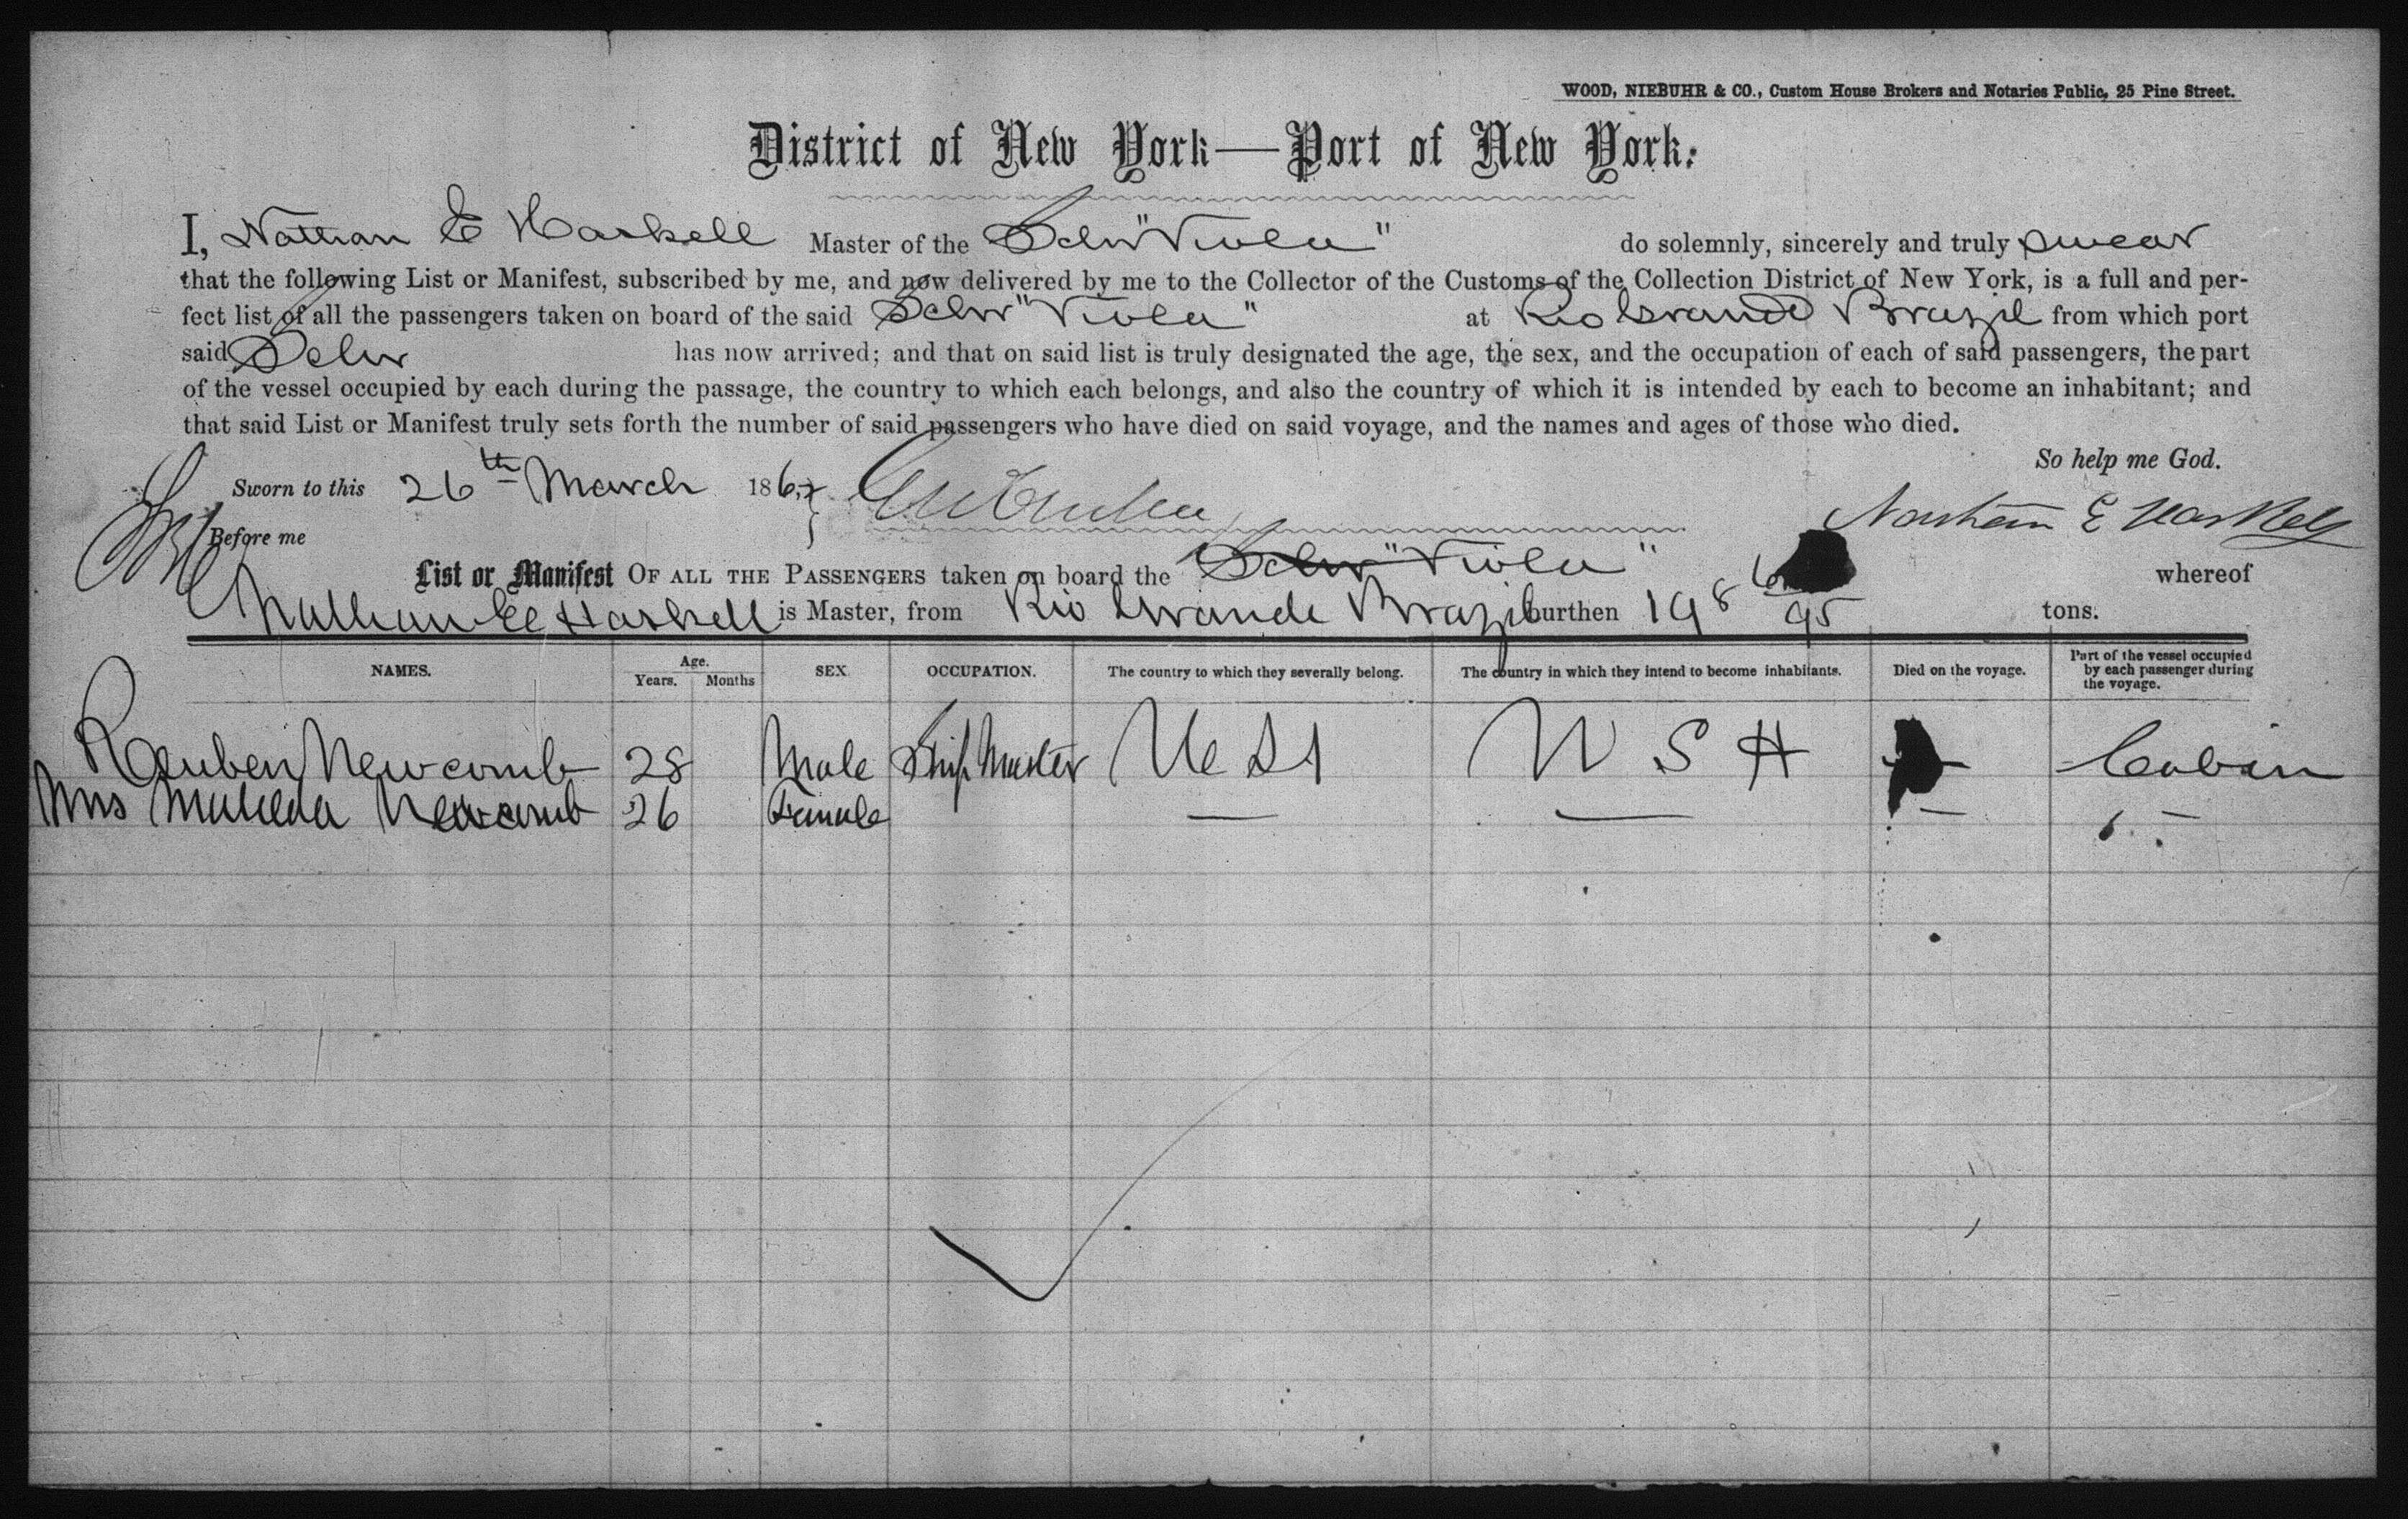 WOOD, NIEBUHR & CO., Custom House Brokers and Notaries Public, 25 Pine Street.
District of New York—Port of New York:
I, Nathan E Haskell Master of the Schr "Viola" do solemnly, sincerely and truly swear
that the following List or Manifest, subscribed by me, and now delivered by me to the Collector of the Customs of the Collection District of New York, is a full and per-
fect list of all the passengers taken on board of the said Schr "Viola" at Rio Grande Brazil from which port
said Schr has now arrived; and that on said list is truly designated the age, the sex, and the occupation of each of said passengers, the part
of the vessel occupied by each during the passage, the country to which each belongs, and also the country of which it is intended by each to become an inhabitant; and
that said List or Manifest truly sets forth the number of said passengers who have died on said voyage, and the names and ages of those who died.
So help me God.
Sworn to this 26th March 186 Nathan E Haskell
Before me
List or Manifest OF ALL THE PASSENGERS taken on board the Schr "Viola" whereof
Nathan E Haskell is Master, from Rio Grande Brazil burthen 198 95 tons.
NAMES. Age. Years. Months SEX. OCCUPATION. The country to which they severally belong. The country in which they intend to become inhabitants. Died on the voyage. Part of the vessel occupied by each passenger during the voyage.
Reuben Newcomb 28 Male Ship Master U S A U S A — Cabin
Mrs Matilda Newcomb 26 Female — — — "